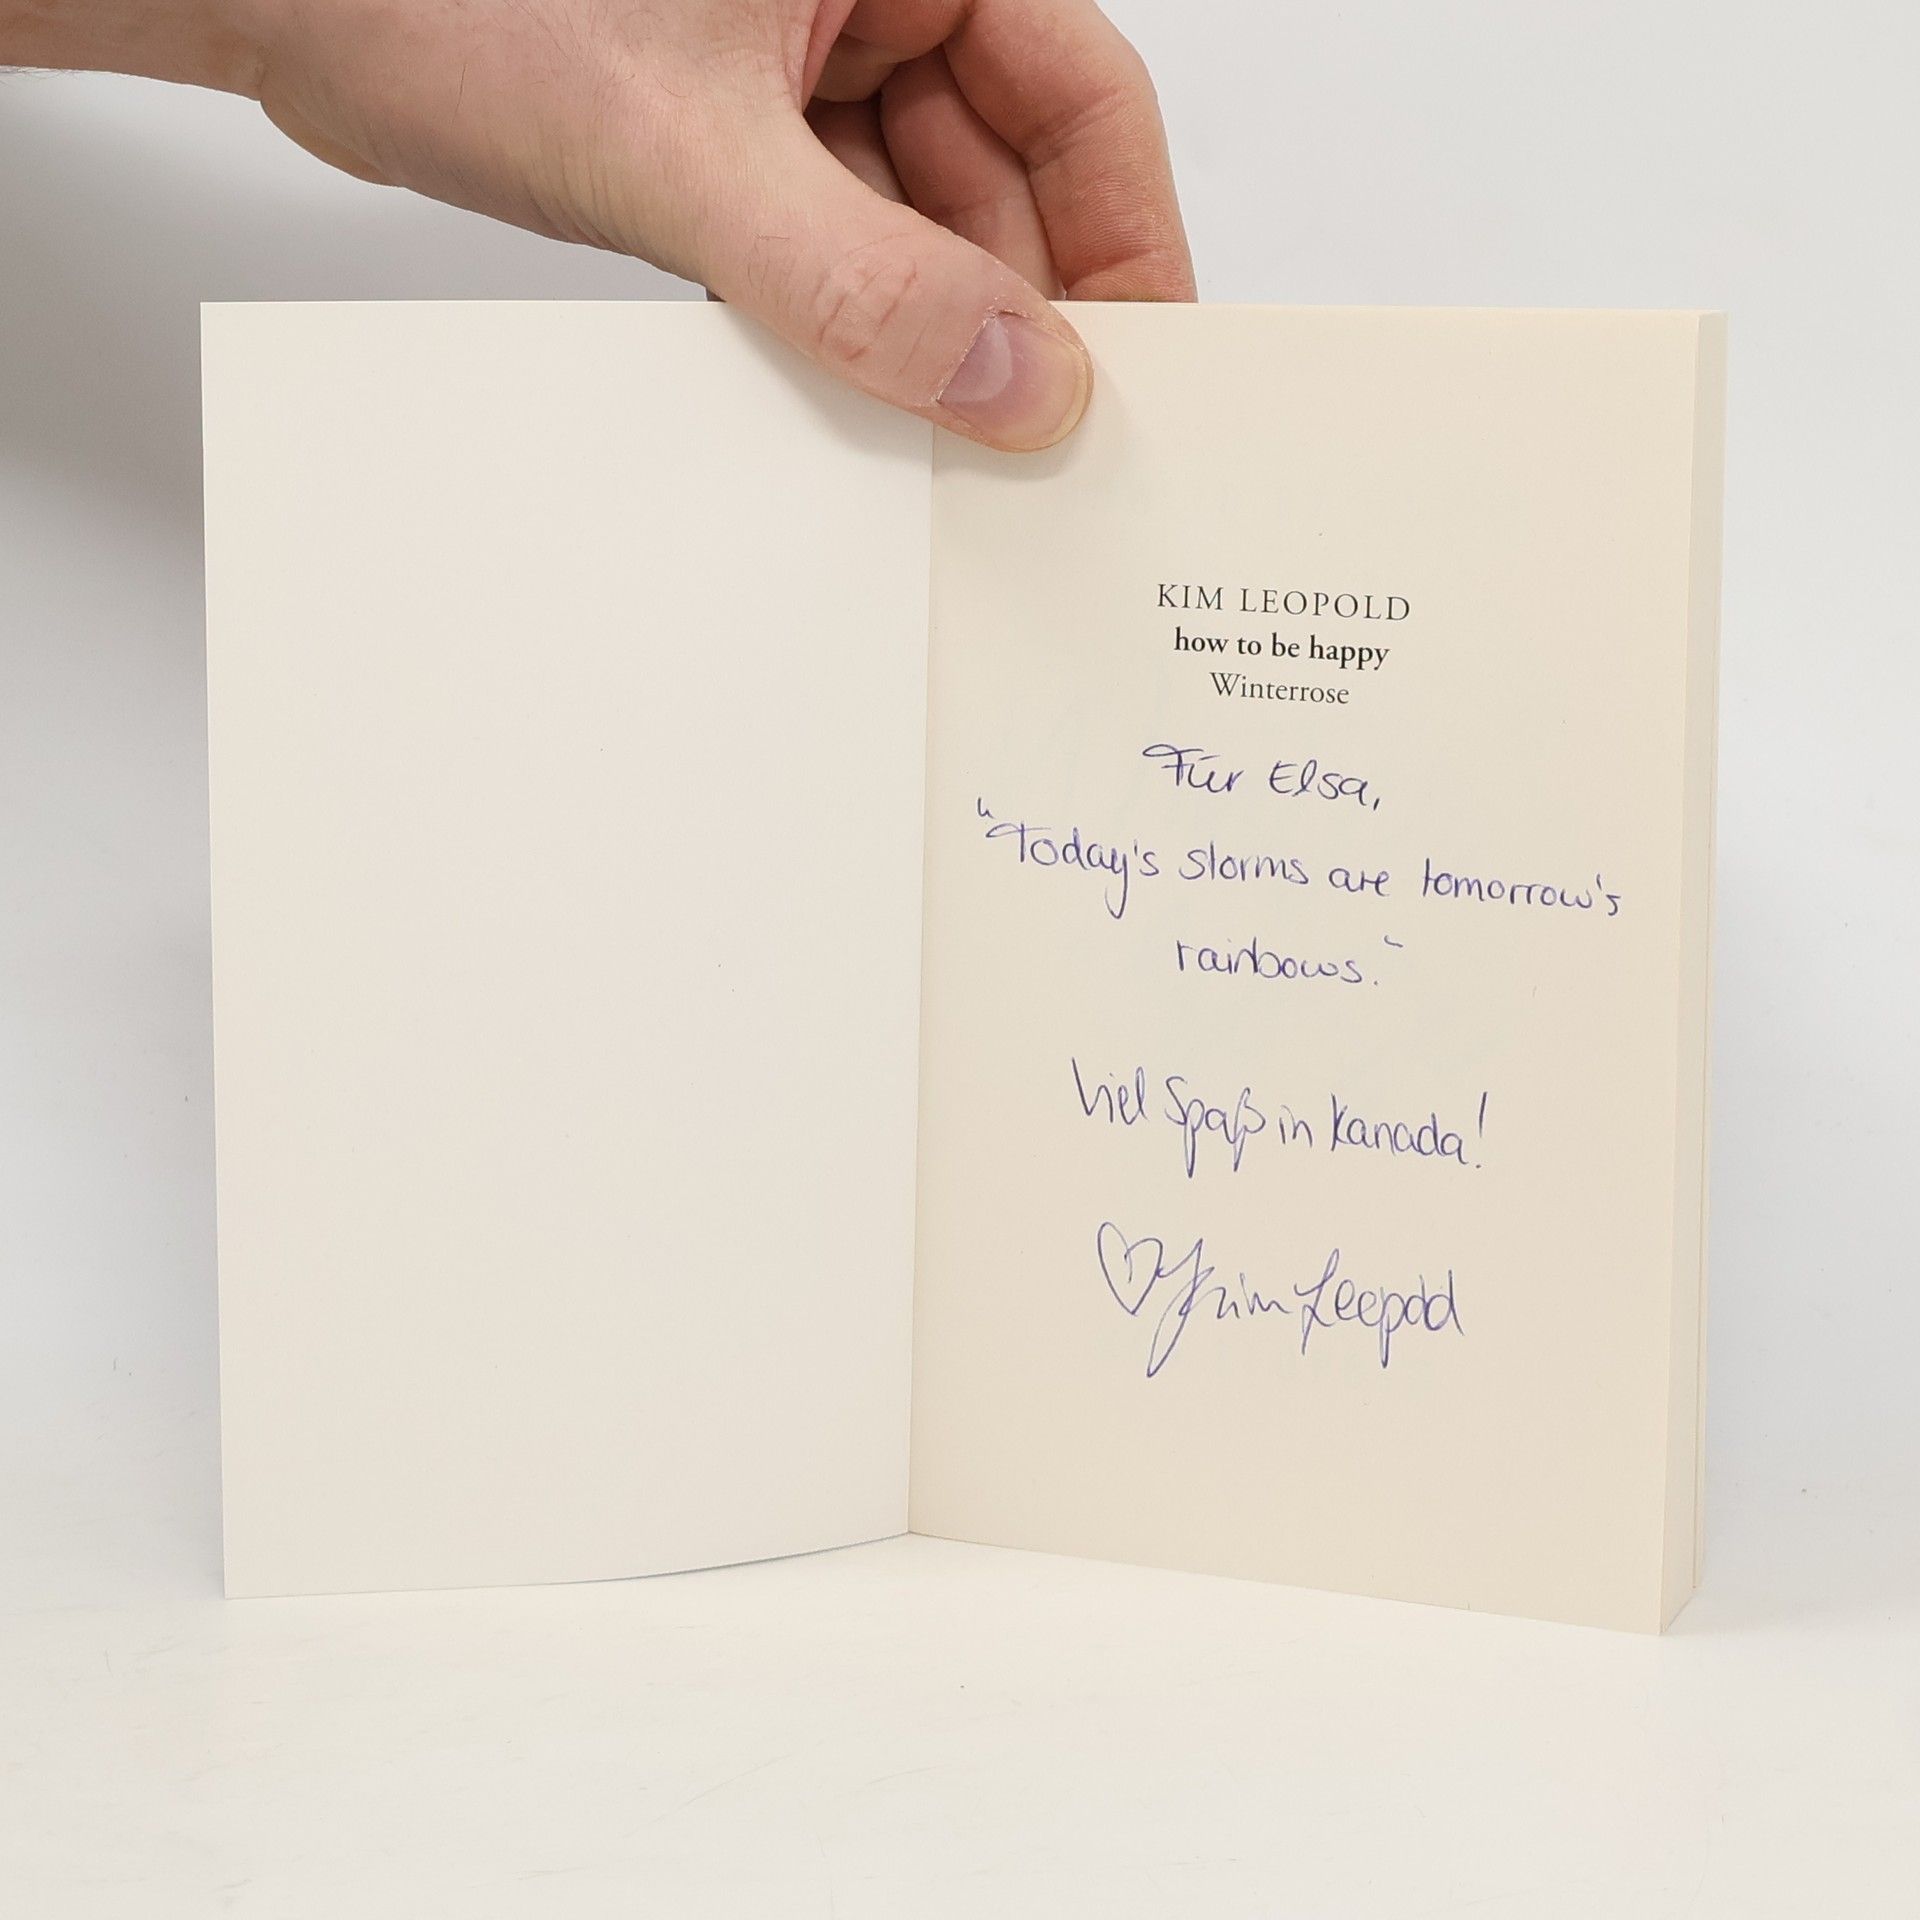 KIM LEOPOLD
how to be happy
Winterrose
Für Elsa,
"Today's storms are tomorrow's
rainbows."
Viel Spaß in Kanada!
♡ Kim Leopold